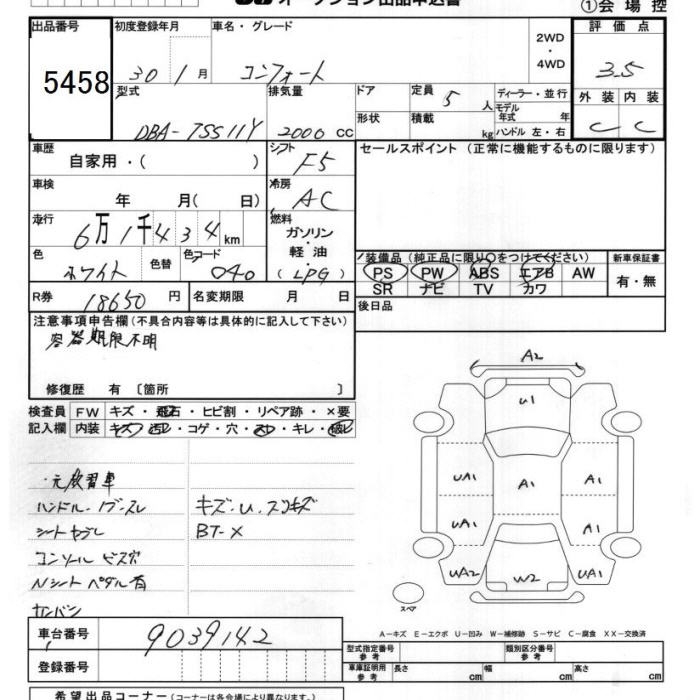 ①会場控
出品番号 初度登録年月 車名・グレード 2WD・4WD 評価点
5458 30 1月 コンフォート 3.5
型式 排気量 ドア 定員 5人 ディーラー・並行 外装 内装
DBA-TSS11Y 2000cc 形状 積載 kg モデル年式 年 ハンドル 左・右 C C
車歴 自家用・( ) シフト F5 セールスポイント (正常に機能するものに限ります)
車検 年 月( 日) 冷房 AC
走行 6万1千434km 燃料 ガソリン・軽油・(LPG)
色 ホワイト 色替 色コード 040
装備品(純正品に限り○をつけてください) 新車保証書
PS PW ABS エアB AW 有・無
SR ナビ TV カワ
R券 18650円 名変期限 月 日 後日品
注意事項申告欄(不具合内容等は具体的に記入して下さい)
容器期限不明
修復歴 有 〔箇所 〕
検査員 FW キズ・飛石・ヒビ割・リペア跡・×要
記入欄 内装 キズ・汚レ・コゲ・穴・スレ・キレ・破レ
A2
U1
UA1 A1 A1
UA1 A1
UA2 W2 UA1
スペア
・元教習車
ハンドル・ノブ・スレ キズ・U・スリキズ
シートヤブレ BT-X
コンソール ビス穴
Nシート ペダル有
サンバン
A-キズ E-エクボ U-凹み W-補修跡 S-サビ C-腐食 XX-交換済
車台番号 9039142
型式指定番号 参考 類別区分番号 参考
登録番号 車庫証明用 参考 長さ cm 幅 cm 高さ cm
希望出品コーナー(コーナーは各会場により異なります。)